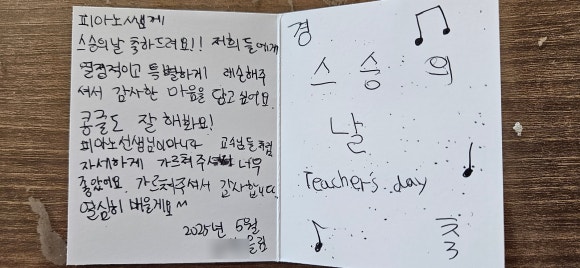 피아노쌤께
스승의날 축하드려요!! 저희들에게
열정적이고 특별하게 레슨해주
셔서 감사한 마음을 담고 싶어요
콩쿨도 잘 해봐요!
피아노선생님이아니라 교수님들처럼
자세하게 가르쳐주셔 너무
좋았어요. 가르쳐주셔서 감사합니다.
열심히 배울게요~
2025년 5월
경
스승의
날
Teacher's day
축